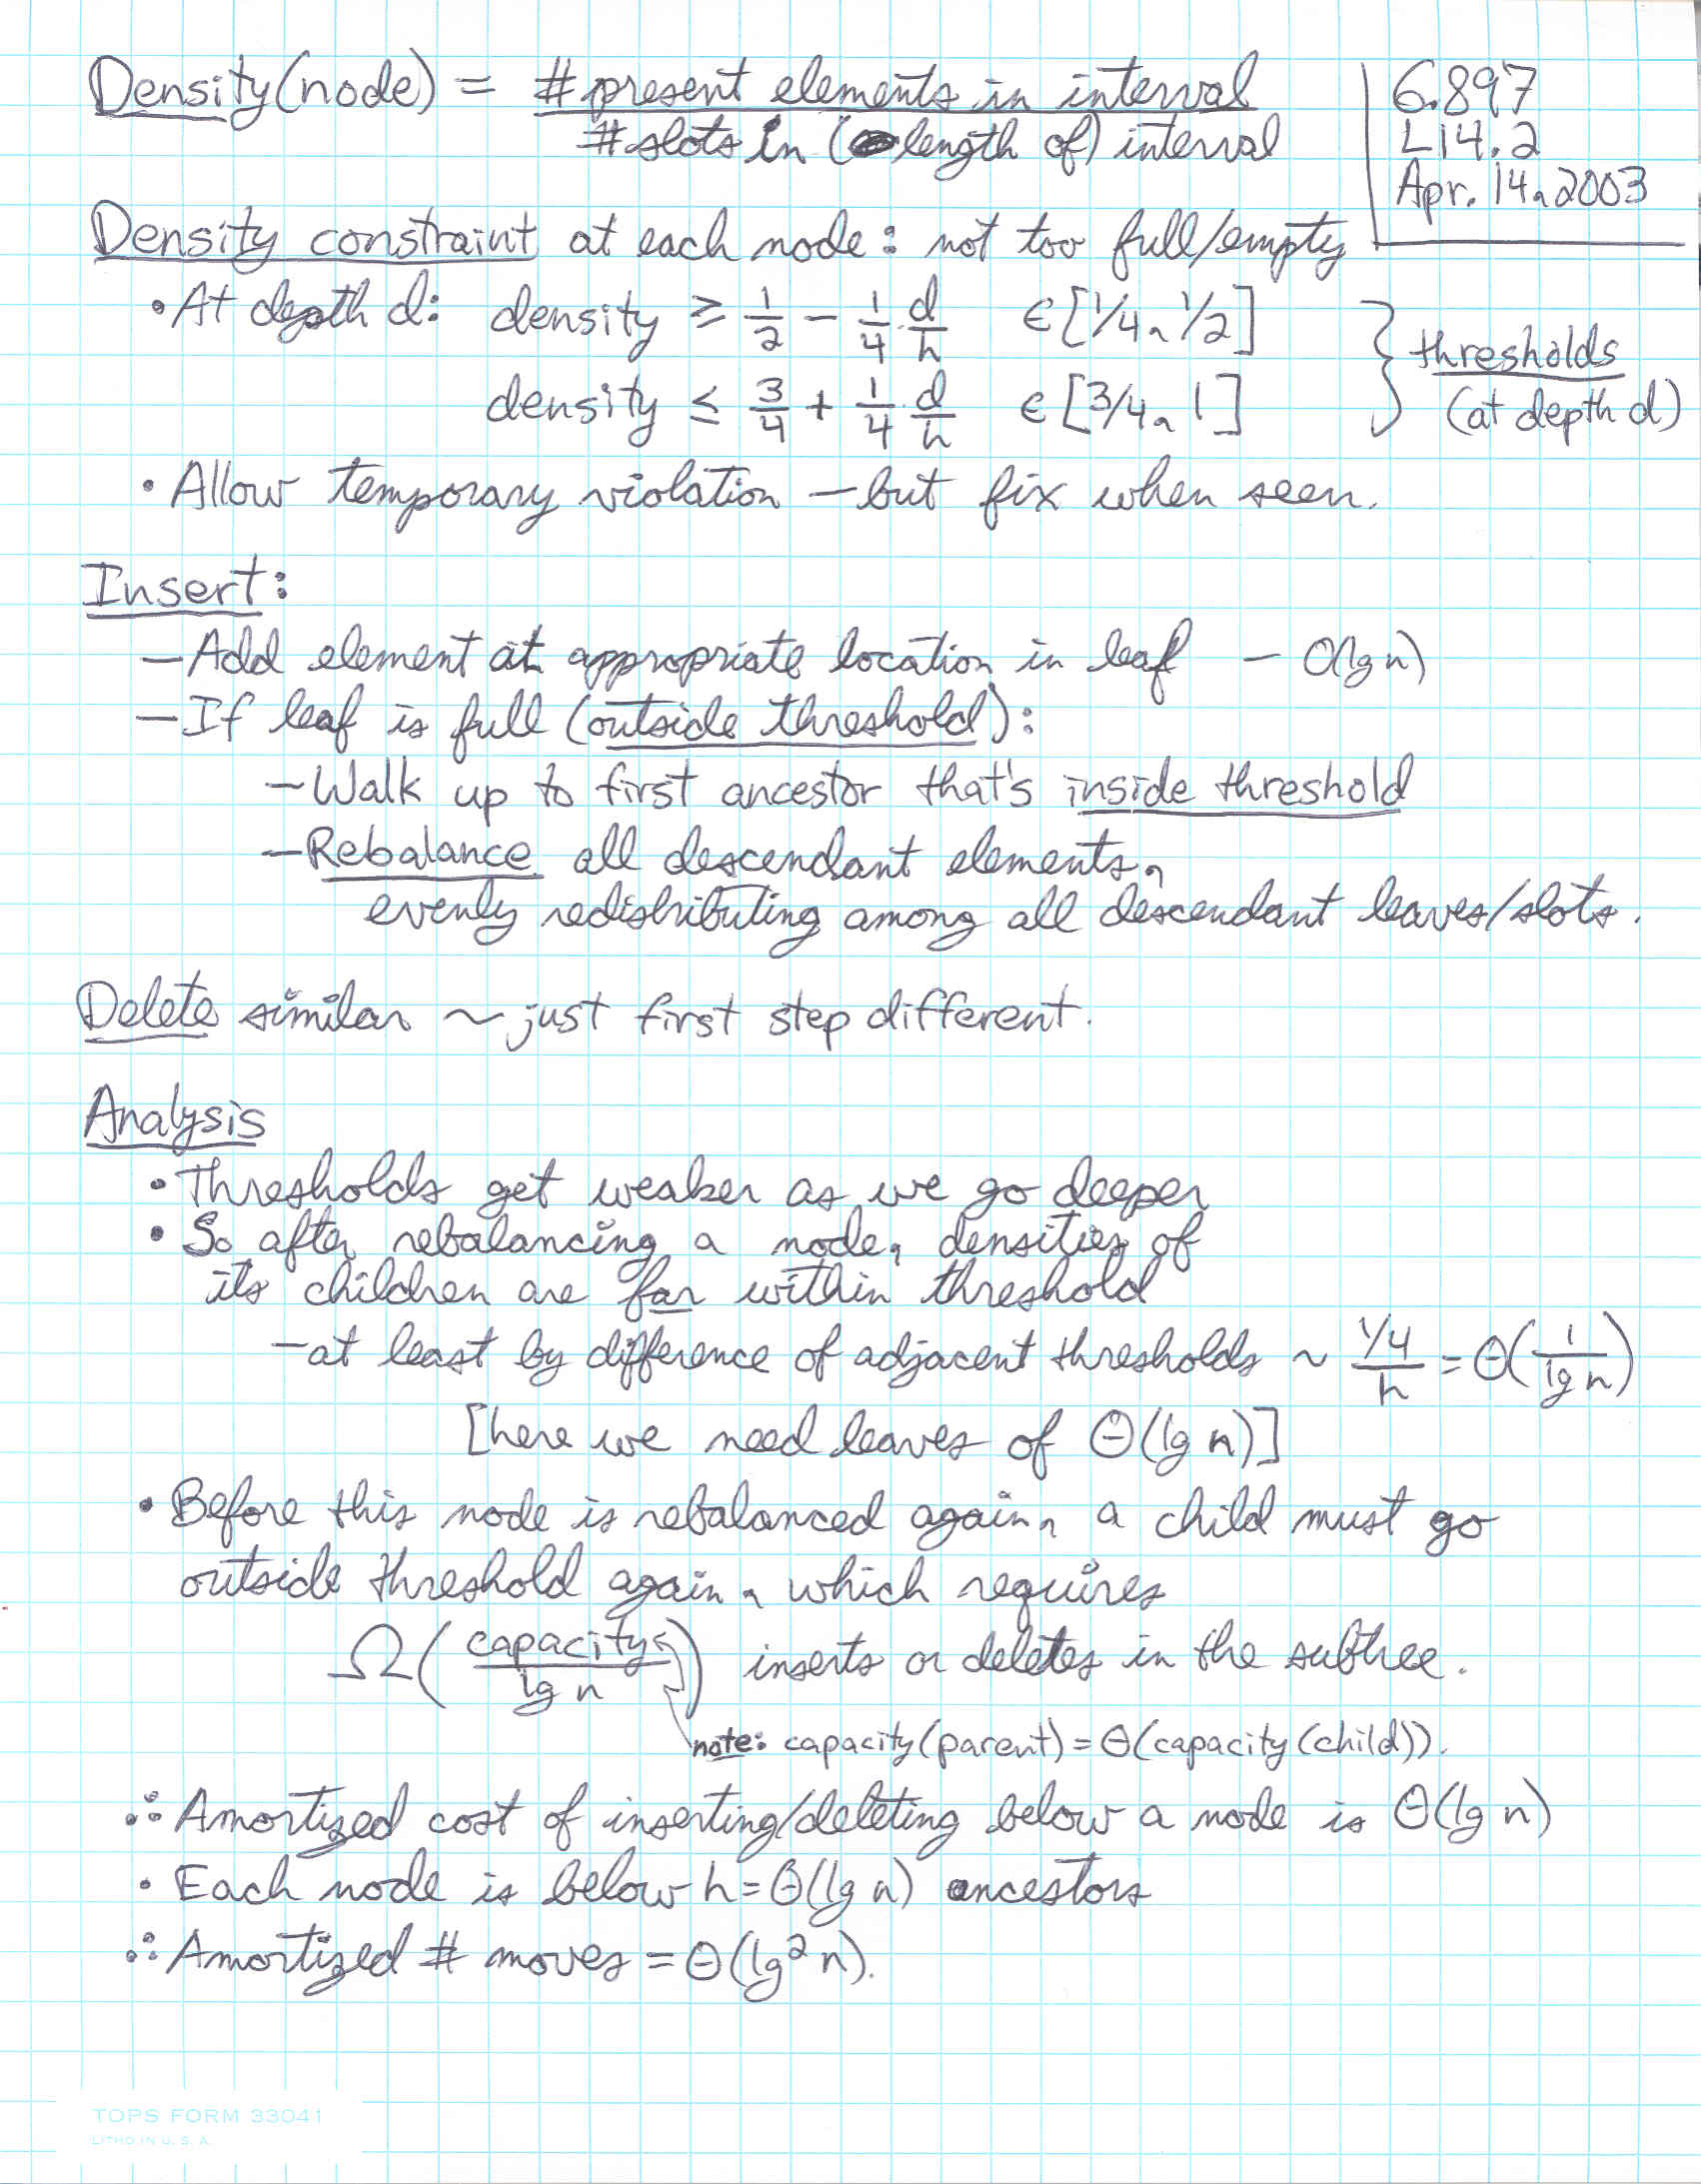 Density(node) = # present elements in interval
# slots in (length of) interval
6.897
L14.2
Apr. 14, 2003
Density constraint at each node: not too full/empty
• At depth d: density ≥ 1/2 - 1/4 · d/h ∈ [1/4, 1/2]
density ≤ 3/4 + 1/4 · d/h ∈ [3/4, 1]
} thresholds
(at depth d)
• Allow temporary violation — but fix when seen.
Insert:
— Add element at appropriate location in leaf — O(lg n)
— If leaf is full (outside threshold):
— Walk up to first ancestor that's inside threshold
— Rebalance all descendant elements,
evenly redistributing among all descendant leaves/slots.
Delete similar ~ just first step different.
Analysis
• Thresholds get weaker as we go deeper
• So after rebalancing a node, densities of
its children are far within threshold
— at least by difference of adjacent thresholds ~ 1/4 / h = Θ(1/lg n)
[here we need leaves of Θ(lg n)]
• Before this node is rebalanced again, a child must go
outside threshold again, which requires
Ω(capacity/lg n) inserts or deletes in the subtree.
note: capacity(parent) = Θ(capacity(child)).
∴ Amortized cost of inserting/deleting below a node is Θ(lg n)
• Each node is below h = Θ(lg n) ancestors
∴ Amortized # moves = Θ(lg² n).
TOPS FORM 33041
LITHO IN U. S. A.